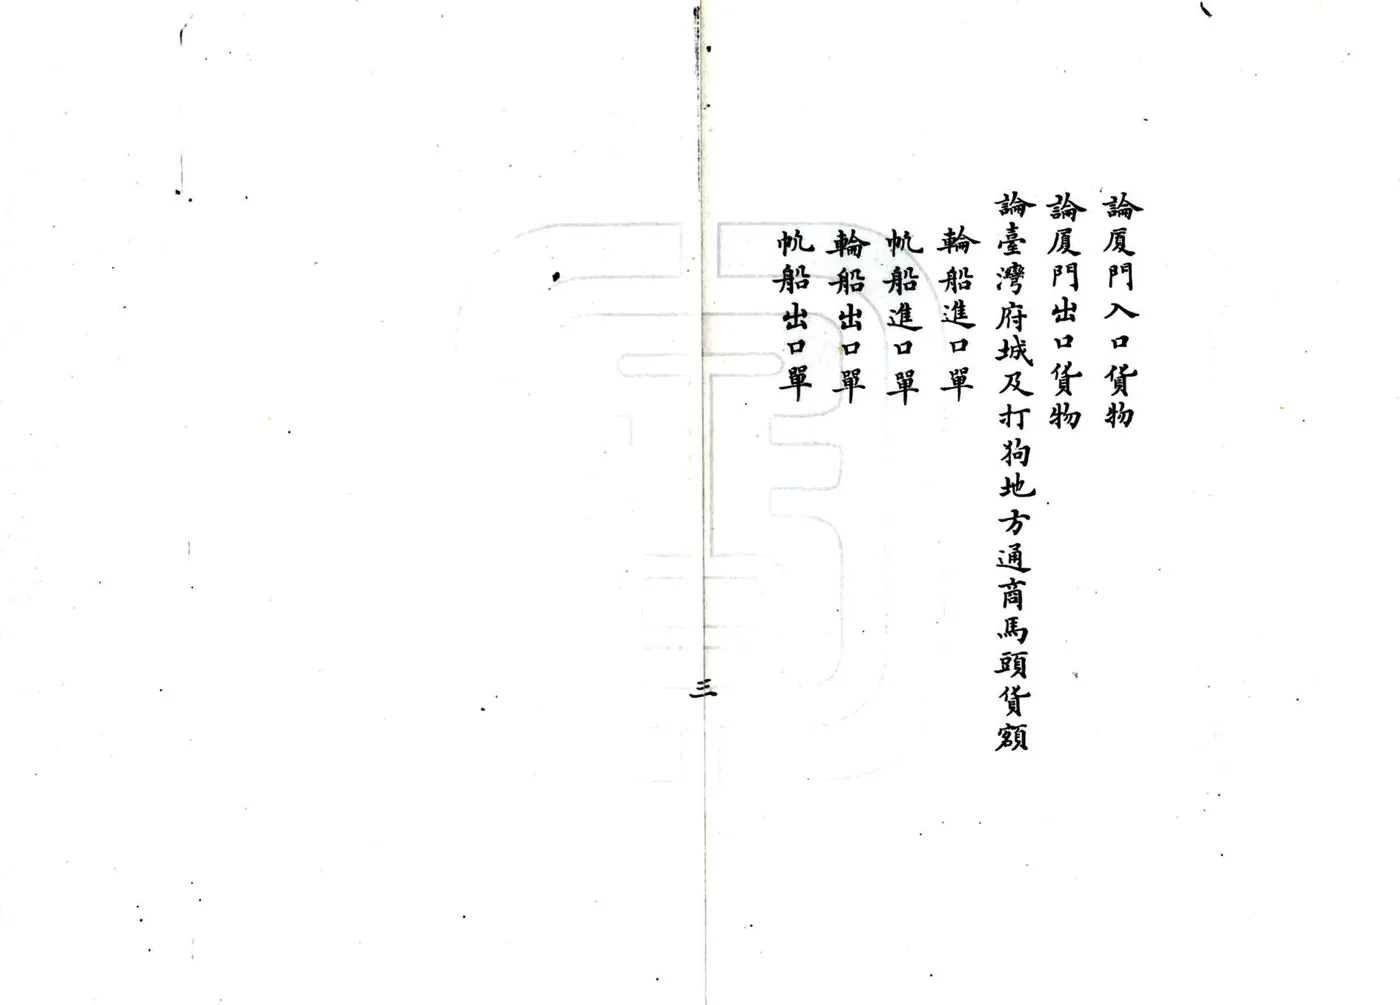 論厦門入口貨物
論厦門出口貨物
論臺灣府城及打狗地方通商馬頭貨額
輪船進口單
帆船進口單
輪船出口單
帆船出口單
三